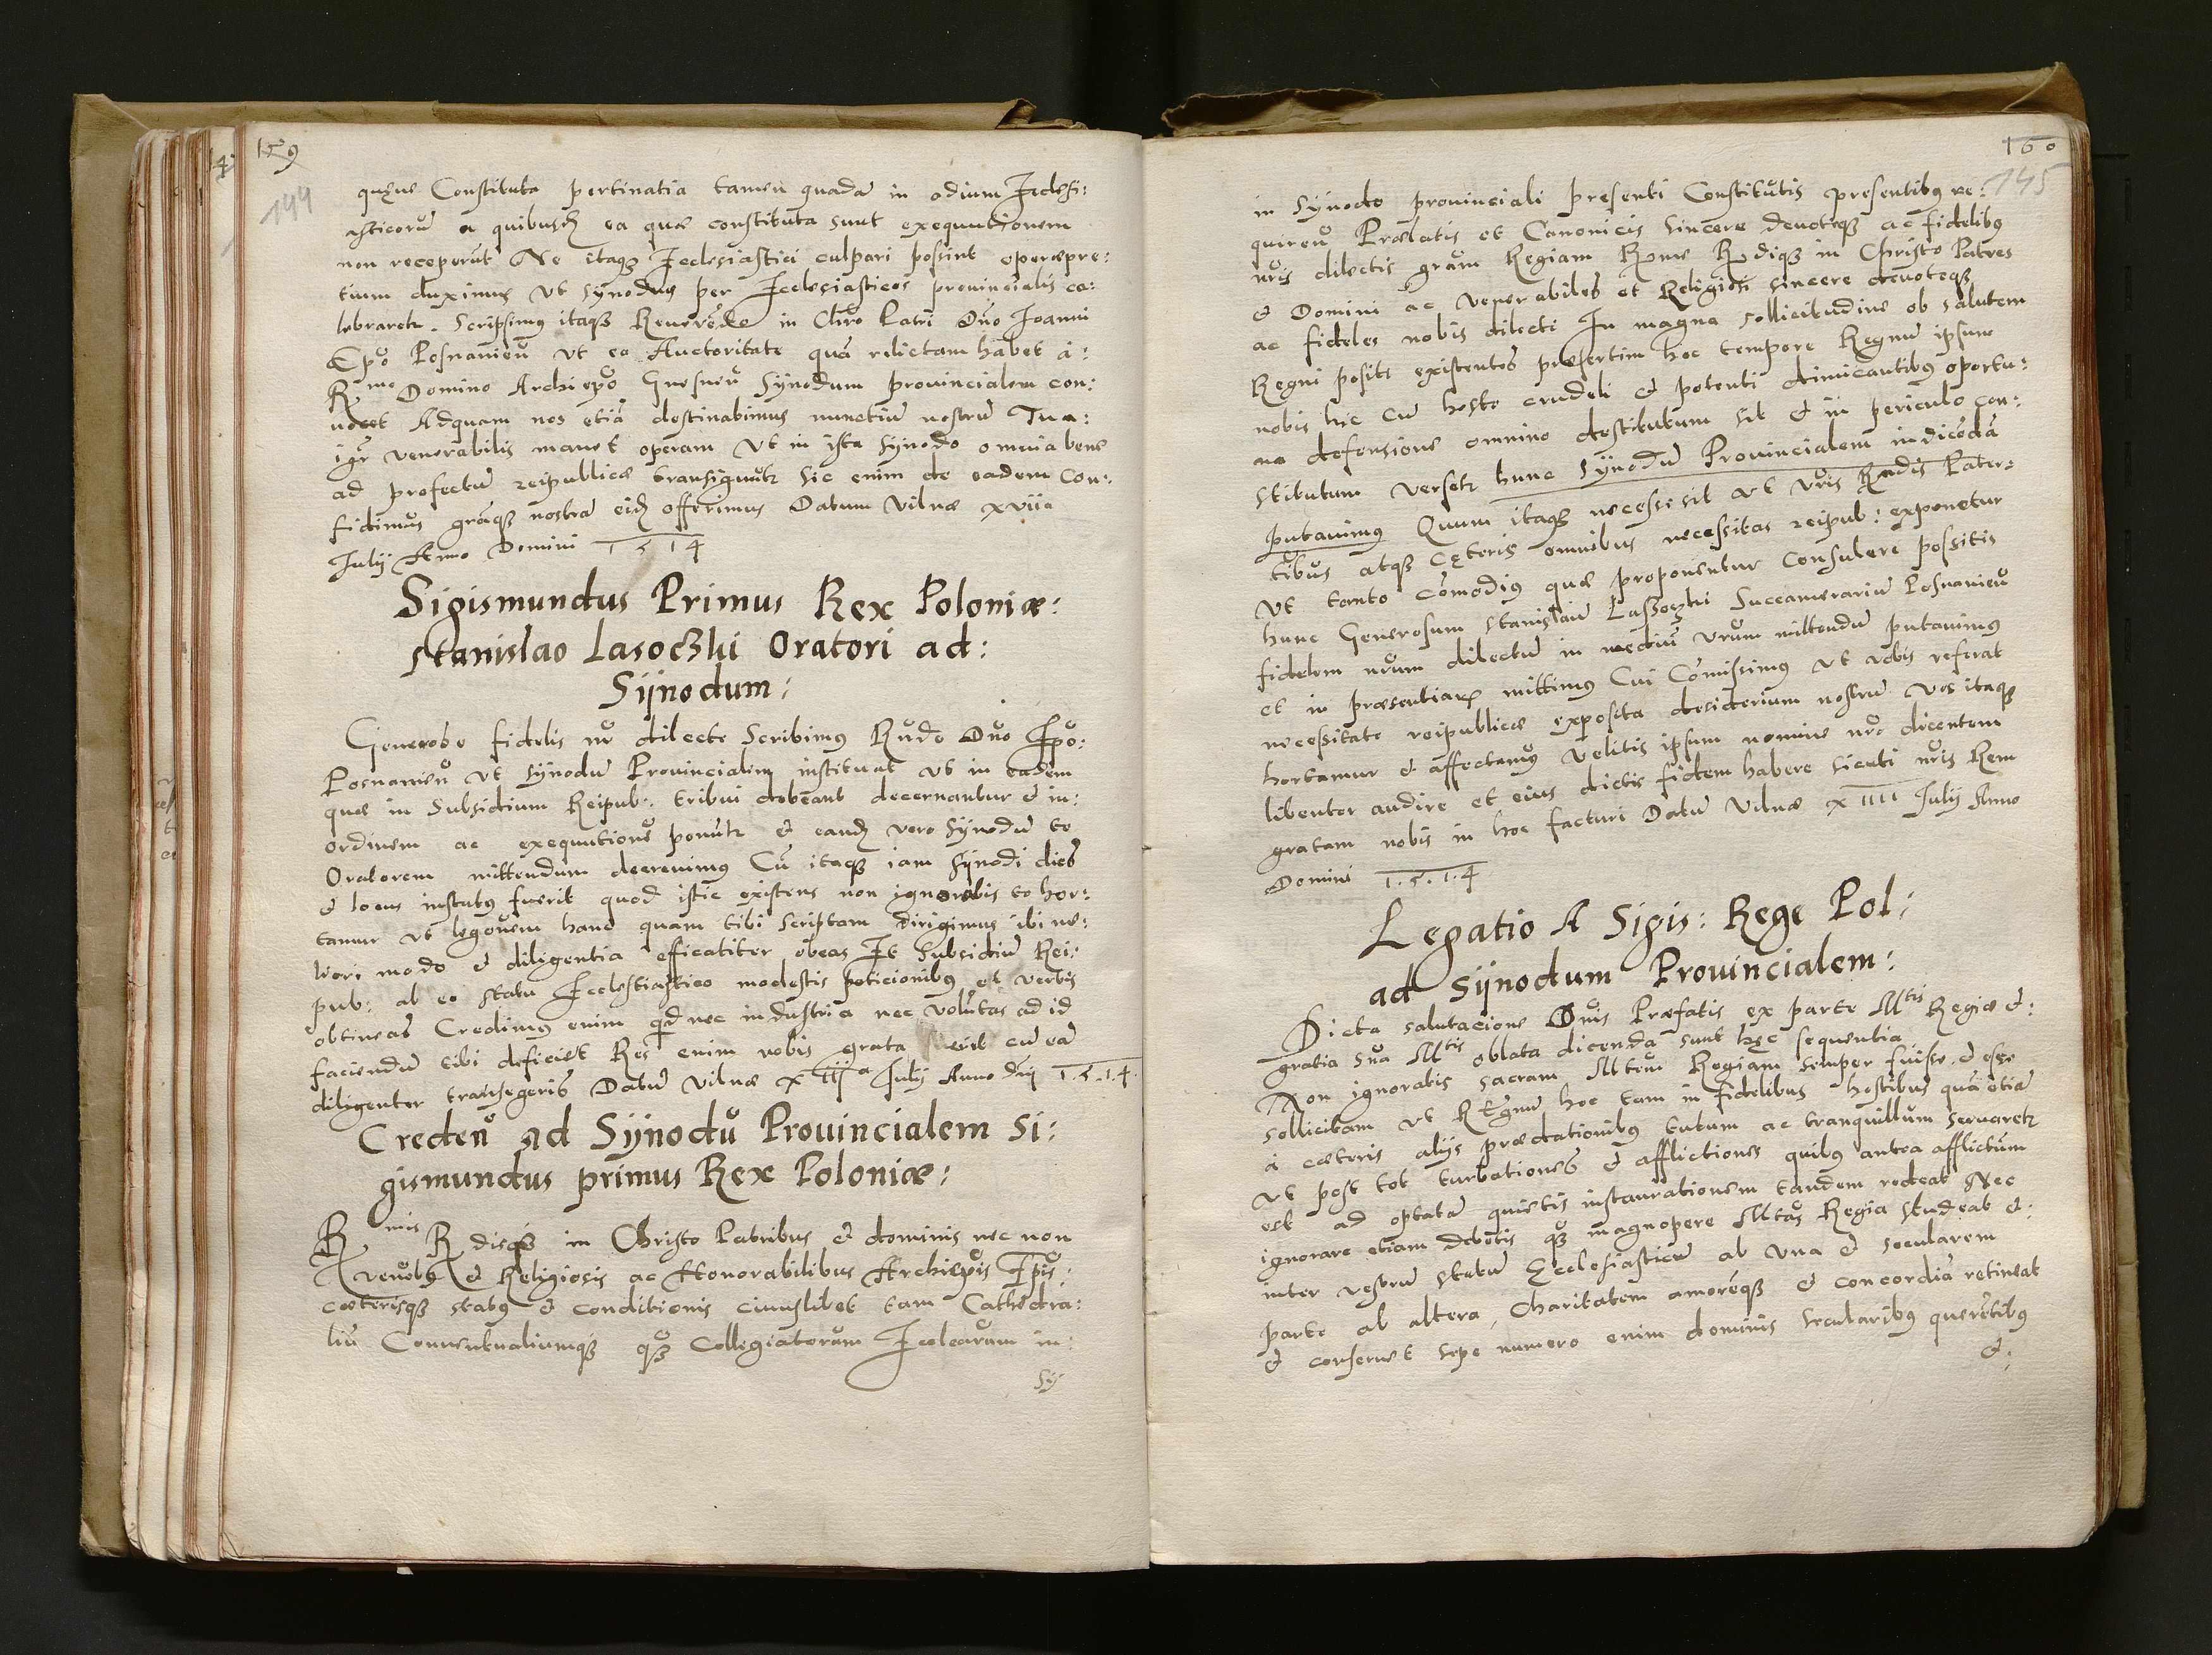 159
144
quęue Constituta pertinatia tamen quadā in odium Ecclesi:
asticorū a quibusd ea quæ constituta sunt exequutionem
non receperūt Ne itaqz Ecclesiastici culpari possint operæpre:
tium duximus Vt synodus per Ecclesiasticos prouincialis ce:
lebraretr. Scripsimus itaqz Reuerēde in Chro Patri Dno Ioanni
Epo Posnanien vt ea Auctoritate quā relictam habet à:
Rmo Domino Archiepo Gnesnen Synodum prouincialem con:
uocet Adquam nos etiā destinabimus nunctiū nostrū Tua:
igr venerabilis nauet operam Vt in ista Synodo omnia bene
ad profectū reipublicæ transigātr Sic enim de eadem con:
fidimus grāqz nostrā eid offerimus Datum Vilnæ xviia
Iulij Anno Domini 1514
Sigismundus Primus Rex Poloniæ:
Stanislao Lasoczki Oratori ad:
Sijnodum:
Generose fidelis nr dilecte Scribimus Rndo Dno Epo:
Posnanien vt Synodū Prouincialem instituat vt in eadem
quæ in Subsidium Reipub: tribui debeant decernantur & in:
ordinem ac exequutionē ponātr & eand vero Synodū te
Oratorem mittendum decreuimus Cū itaqz iam Synodi dies
& locus institutus fuerit quod istic existens non ignorabis te hor:
tamur vt legōnem hanc quam tibi scriptam dirigimus ibi me:
liori modo & diligentia efficatiter obeas Et Subsidiū Rei:
pub: ab eo statu Ecclesiastico modestis peticionibus et verbis
obtineas Credimus enim qd nec industria nec volūtas ad id
faciendū tibi deficiet Res enim nobis grata erit cū eā
diligenter transegeris Datū Vilnæ x iiij a Iulij Anno Dni 1.5.1.4.
Creden ad Sijnodū Prouincialem Si:
gismundus primus Rex Poloniæ:
Rmis Rdisqz in Christo Patribus & dominis nec non
venebus & Religiosis ac Honorabilibus Archiepis Epis:
cæterisqz status & conditionis cuiuslibet tam Cathedra:
liū Conuentualiumqz qz Collegiatorum Ecclearum in:
Sy
160
145
in Synodo prouinciali presenti Constitutis presentibus re:
quiren Prælatis et Canonicis Sincere deuoteqz ac fidelibus
nris dilectis gram Regiam Rme Rdiqz in Christo Patres
& Domini ac venerabiles et Religiosi sincere deuoteqz
ac fideles nobis dilecti In magna sollicitudine ob salutem
Regni positi existentes præsertim hoc tempore Regnū ipsum
nobis hic cū hoste crudeli & potenti dimicantibus oportu:
na defensione omnino destitutum sit & in periculo con:
stitutum versetr hunc Synodū Prouincialem indicēdā
putauimus Quum itaqz necesse sit vt vris Rndis Pater:
tibus atqz cęteris omnibus necessitas reipub: exponetur
Vt tanto cōmodius quæ proponentur Consulere possitis
hunc Generosum Stanislaū Laszoczki Succamerariū Posnanien
fidelem nrum dilectū in mediū vrum mittendū putauimus
et in præsentiarū mittimus Cui Comisimus vt vobis referat
necessitate reipublicæ exposita desiderium nostrū Vos itaqz
hortamur & affectamus velitis ipsum nomine nro dicentem
libenter audire et eius dictis fidem habere sicuti nris Rem
gratam nobis in hoc facturi Datū Vilnæ x IIII Iulij Anno
Domini 1.5.1.4
Legatio A Sigis: Rege Pol:
ad Sijnodum Prouincialem:
Dicta salutacione Dnis Præfatis ex parte Mtis Regiæ &:
gratia sua Mtis oblata dicenda sunt hęc sequentia
Non ignoratis sacram Mtem Regiam semper fuisse & esse
sollicitam vt Regnū hoc tam in fidelibus hostibus quā etiā
à cæteris alijs prædationibus tutum ac tranquillum seruaretr
Vt post tot turbationes & afflictiones quibus antea afflictum
est ad optatā quietis instaurationem tandem redeat Nec
ignorare etiam debetis qz magnopere Mtas Regia Studeat &:
inter vestrū statū Ecclesiasticū ab Vna & secularem
parte ab altera, Charitatem amorēqz & concordiā retineat
& conseruet sepe numero enim dominis secularibus querētibus
&: